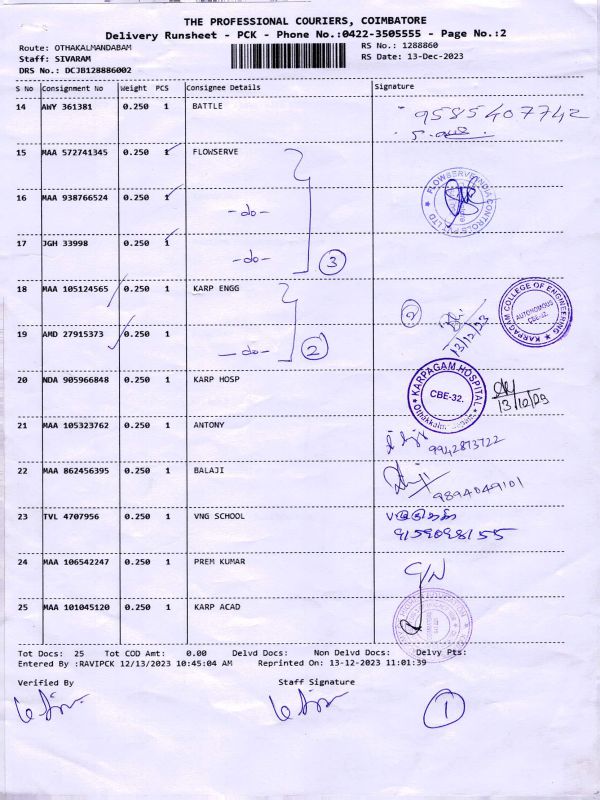 THE PROFESSIONAL COURIERS, COIMBATORE
Delivery Runsheet - PCK - Phone No.:0422-3505555 - Page No.:2
Route: OTHAKALMANDABAM
RS No.: 1288860
Staff: SIVARAM
RS Date: 13-Dec-2023
DRS No.: DCJB128886002
S No Consignment No Weight PCS Consignee Details Signature
14 AWY 361381 0.250 1 BATTLE 9585407742
15 MAA 572741345 0.250 1 FLOWSERVE
16 MAA 938766524 0.250 1 -do- FLOWSERVE INDIA CONTROLS PVT LTD
17 JGH 33998 0.250 1 -do- 3
18 MAA 105124565 0.250 1 KARP ENGG 13/12/23 KARPAGAM COLLEGE OF ENGINEERING AUTONOMOUS CBE-32.
19 AMD 27915373 0.250 1 -do- 2
20 NDA 905966848 0.250 1 KARP HOSP KARPAGAM HOSPITAL CBE-32. 13/12/23
21 MAA 105323762 0.250 1 ANTONY 9942873722
22 MAA 862456395 0.250 1 BALAJI 9894049101
23 TVL 4707956 0.250 1 VNG SCHOOL 9159098155
24 MAA 106542247 0.250 1 PREM KUMAR
25 MAA 101045120 0.250 1 KARP ACAD
Tot Docs: 25 Tot COD Amt: 0.00 Delvd Docs: Non Delvd Docs: Delvy Pts:
Entered By :RAVIPCK 12/13/2023 10:45:04 AM Reprinted On: 13-12-2023 11:01:39
Verified By Staff Signature
1